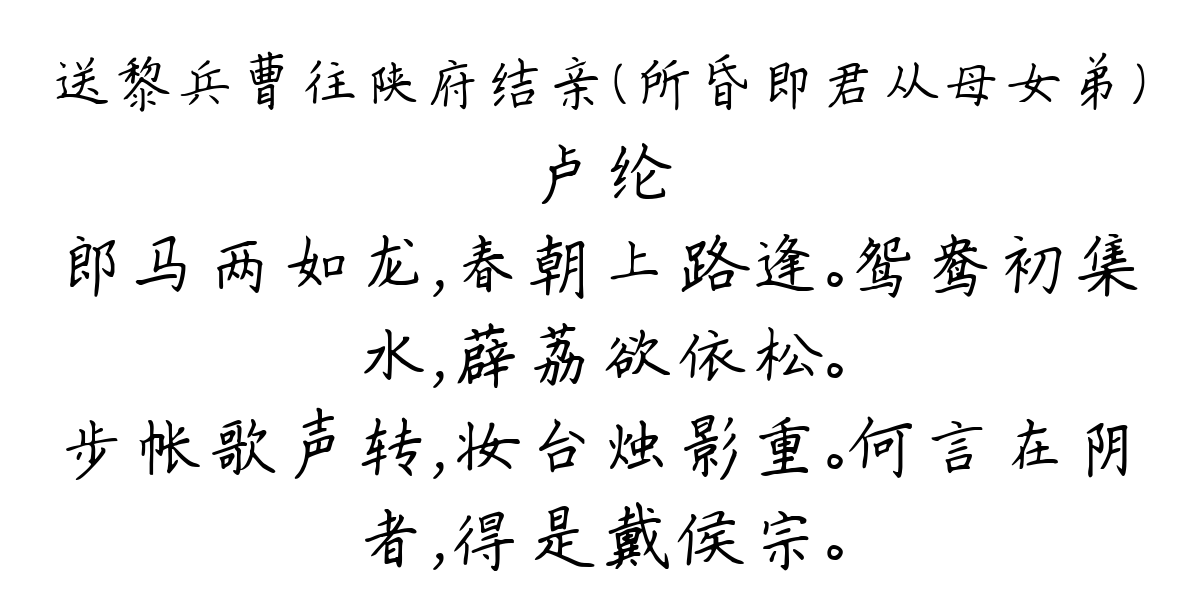 送黎兵曹往陕府结亲(所昏即君从母女弟)
卢纶
郎马两如龙,春朝上路逢。鸳鸯初集
水,薜荔欲依松。
步帐歌声转,妆台烛影重。何言在阴
者,得是戴侯宗。